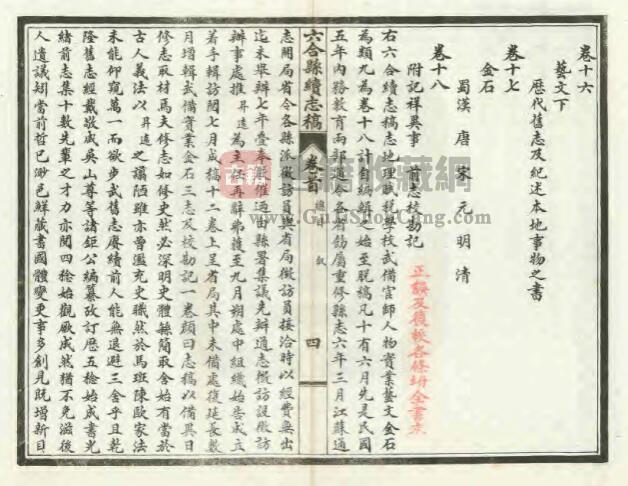 卷十六
藝文下
歷代舊志及紀述本地事物之書
卷十七
金石
蜀漢 唐 宋 元 明 清
卷十八
附記祥異事 前志校勘記
正誤及復校各條坿全書末
右六合縣續志稿志地理賦稅學校武備官師人物實業藝文金石
為類九為卷十八計自編輯之始至脫稿凡十有六月先是民國
五年內務教育兩部通令各省飭屬重修縣志六年三月江蘇通
志開局省令各縣派徵訪員與省局徵訪員接洽時以經費無出
迄未舉辦七年疊奉嚴催迺由縣署集議先辦通志徵訪設徵訪
辦事處推昇遠為主任再辭弗獲至九月朔處中組織始告成立
着手輯訪閱七月成稿十二卷上呈省局其中未備處復延長數
月增輯武備實業金石三志及校勘記一卷顏曰志稿以備異日
修志取材焉夫修志如修史然必深明史體繇簡取舍始有當於
古人義法以昇遠之譾陋雖亦曾濫充史職然於馬班陳歐家法
未能仰窺萬一而欲步武舊志賡續前人能無退避三舍乎且乾
隆舊志經戴敬成吳山尊等諸鉅公編纂改訂歷五稔始成書光
緒前志集十數先輩之才力亦閱四稔始觀厥成然猶不免滋後
人遺議矧當前哲已渺邑鮮藏書國體變更事多創見既增新目
六合縣續志稿
卷首
總目 敘
四
古籍收藏網
www.GuJiShouCang.com